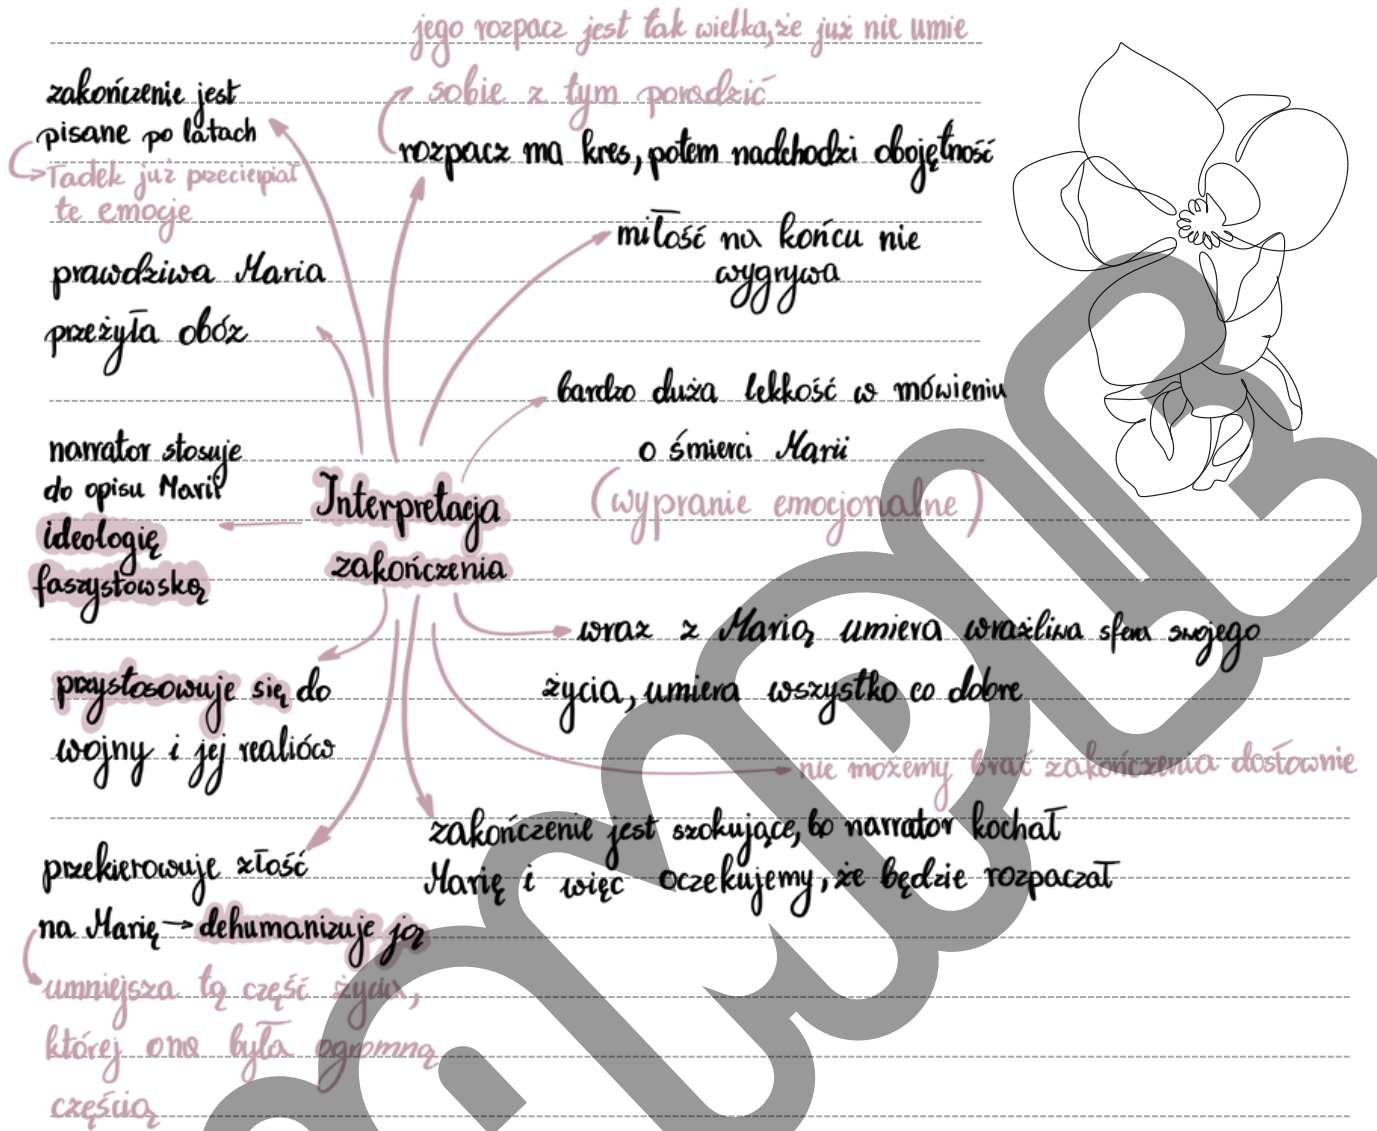 jego rozpacz jest tak wielka, że już nie umie
sobie z tym poradzić
rozpacz ma kres, potem nadchodzi obojętność
zakończenie jest
pisane po latach
Tadek już przecierpiał
te emocje
prawdziwa Maria
przeżyła obóz
miłość na końcu nie
wygrywa
bardzo duża lekkość w mówieniu
o śmierci Marii
(wypranie emocjonalne)
narrator stosuje
do opisu Marii
ideologię
faszystowską
Interpretacja
zakończenia
wraz z Marią umiera wrażliwa sfera swojego
życia, umiera wszystko co dobre
przystosowuje się do
wojny i jej realiów
nie możemy brać zakończenia dosłownie
zakończenie jest szokujące, bo narrator kochał
Marię i więc oczekujemy, że będzie rozpaczał
przekierowuje złość
na Marię → dehumanizuje ją
umniejsza tą część życia,
której ona była ogromną
częścią